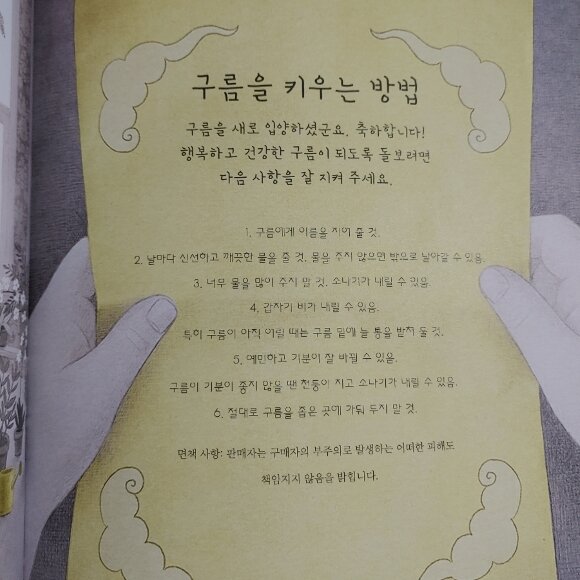 구름을 키우는 방법
구름을 새로 입양하셨군요. 축하합니다!
행복하고 건강한 구름이 되도록 돌보려면
다음 사항을 잘 지켜 주세요.
1. 구름에게 이름을 지어 줄 것.
2. 날마다 신선하고 깨끗한 물을 줄 것. 물을 주지 않으면 밖으로 날아갈 수 있음.
3. 너무 물을 많이 주지 말 것. 소나기가 내릴 수 있음.
4. 갑자기 비가 내릴 수 있음.
특히 구름이 아직 어릴 때는 구름 밑에 늘 통을 받쳐 둘 것.
5. 예민하고 기분이 잘 바뀔 수 있음.
구름이 기분이 좋지 않을 땐 천둥이 치고 소나기가 내릴 수 있음.
6. 절대로 구름을 좁은 곳에 가둬 두지 말 것.
면책 사항: 판매자는 구매자의 부주의로 발생하는 어떠한 피해도
책임지지 않음을 밝힙니다.